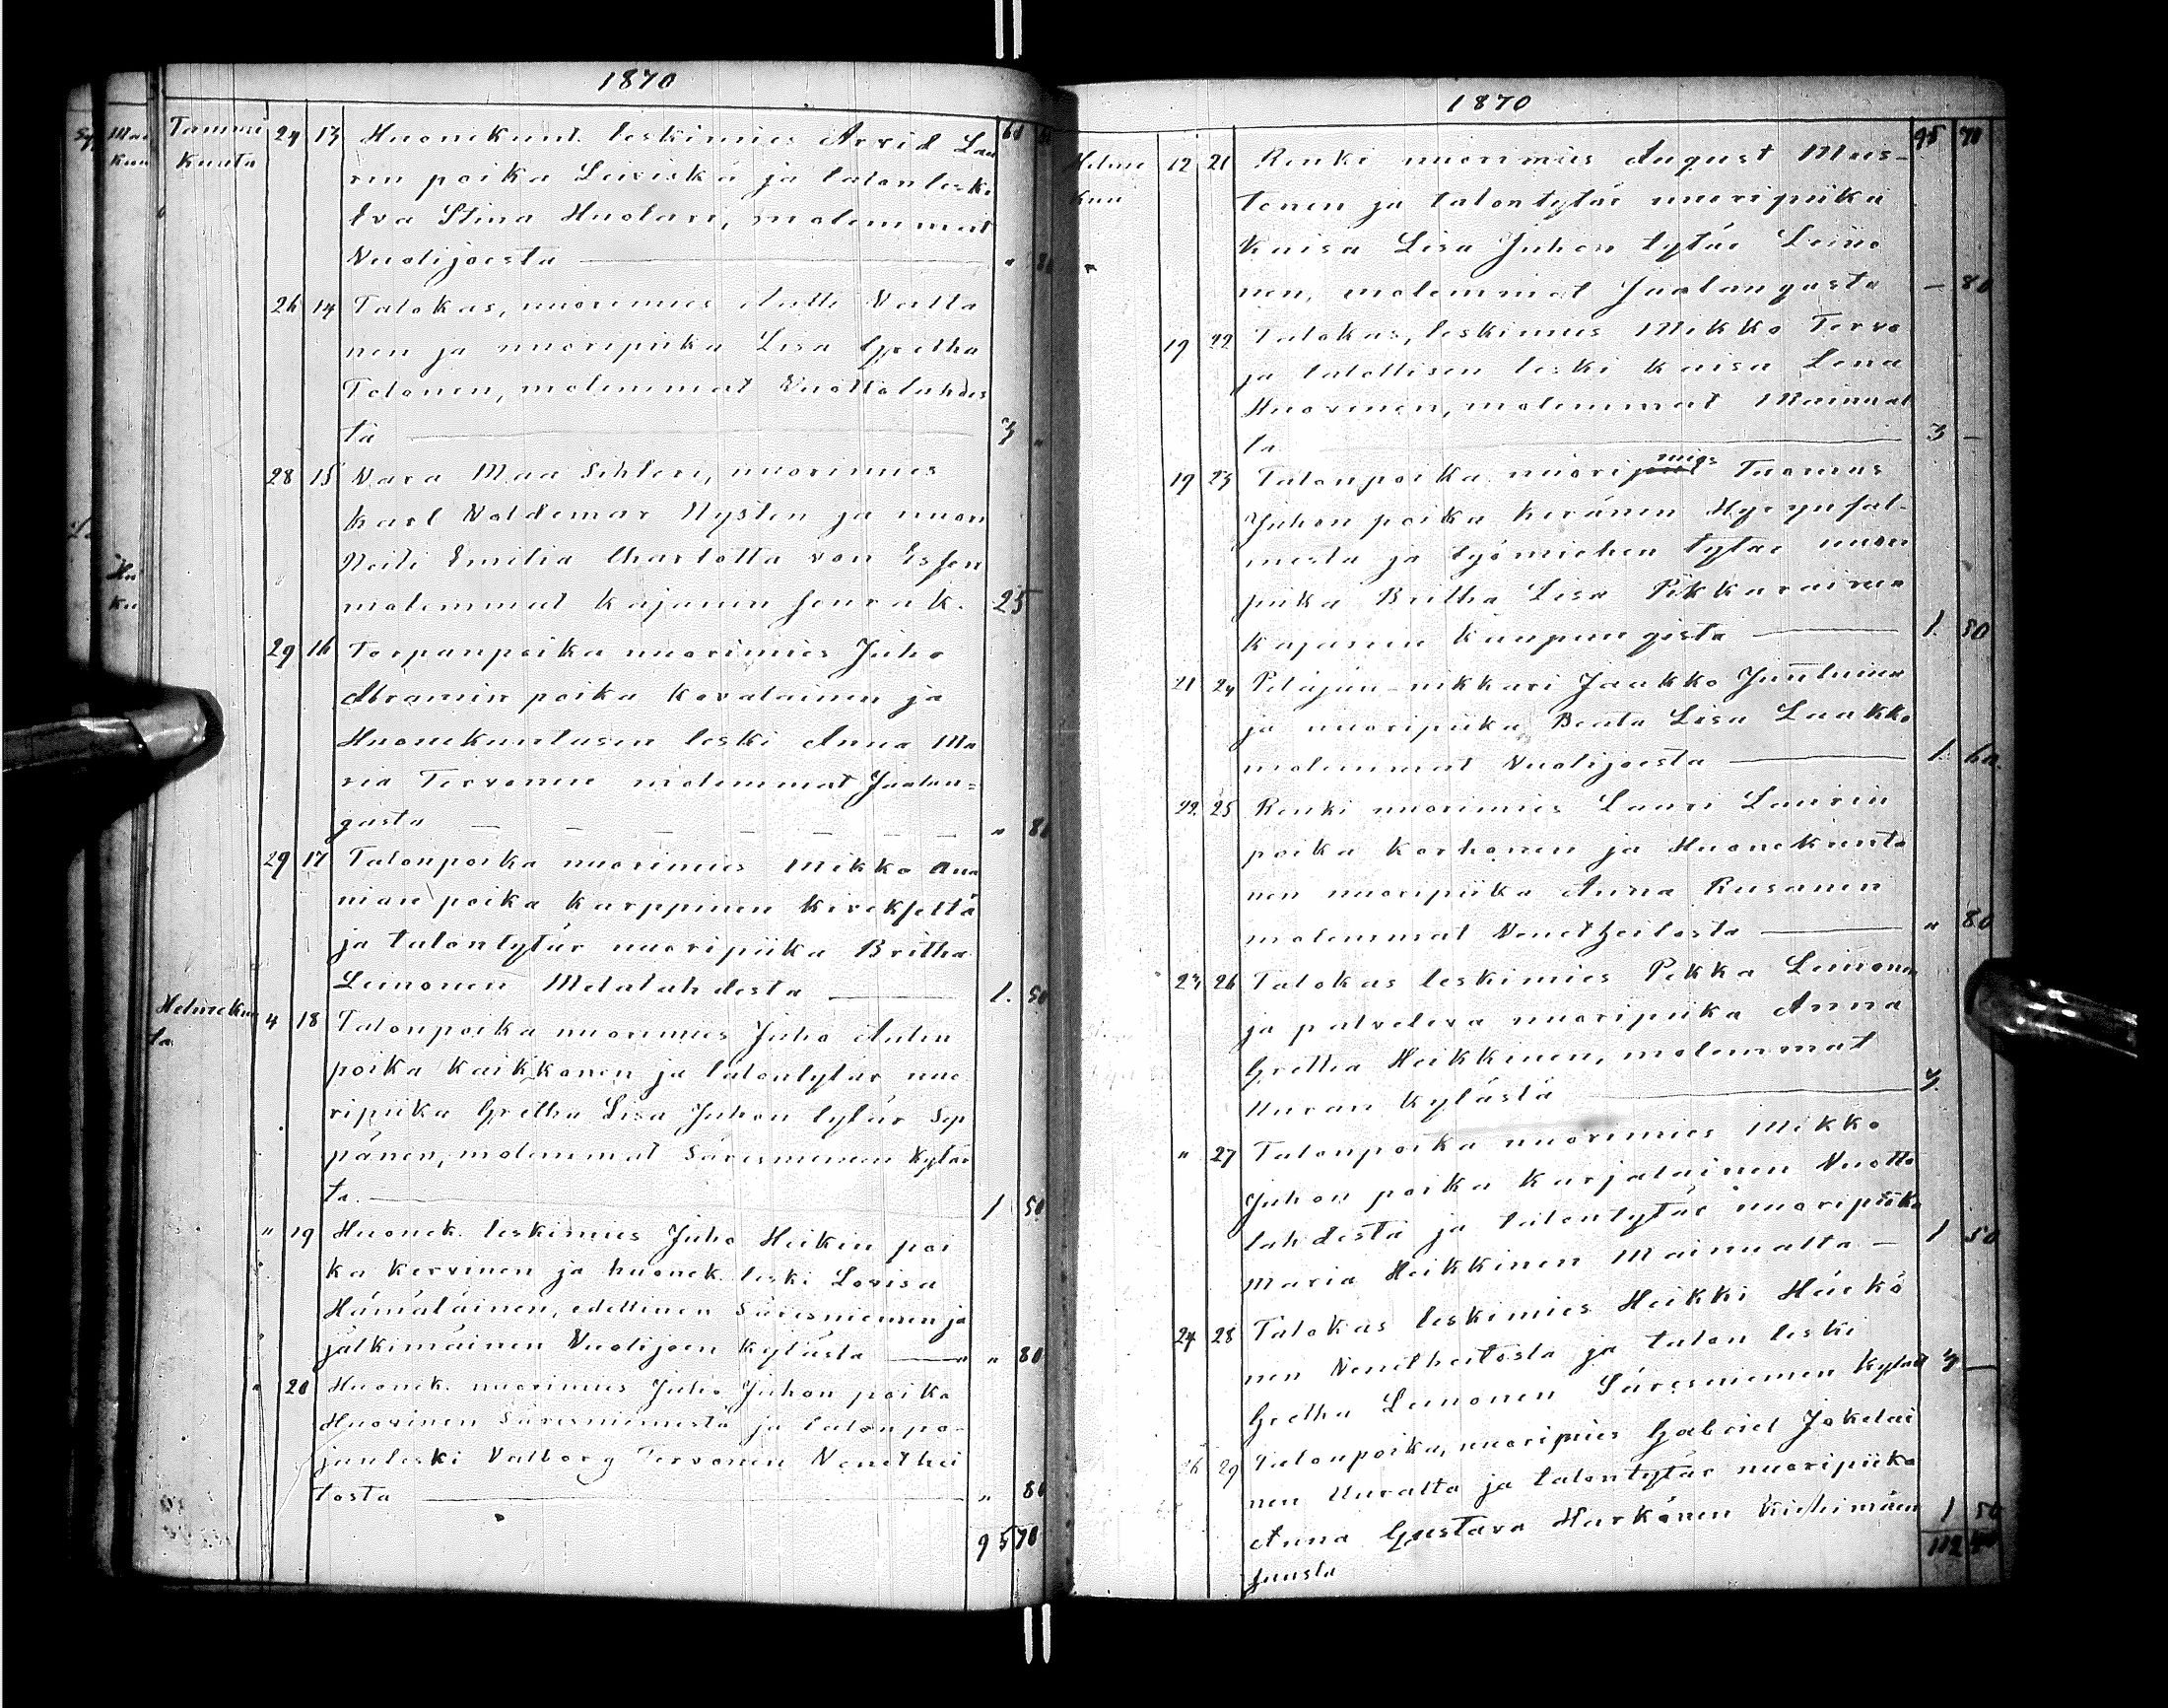 1870
Tammi 24 13 Huonekunt. leskimies Arvid Lau 60
kuuta rin poika Leiviskä ja talonleski
Eva Stina Huotari, molemmat
Vuolijoesta — " 80
26 14 Talokas, nuorimies Antti Vatta
nen ja nuoripiika Lisa Gretha
Tolonen, molemmat Vuottolahdes
ta — 3 "
28 15 Vara Maa Sihteri, nuorimies
Karl Voldemar Nysten ja nuori
Neiti Emilia Charlotta von Essen
molemmat Kajanin seurak. 25
29 16 Torpanpoika nuorimies Juho
Abramin poika Kovalainen ja
Huonekuntasen leski Anna Ma
ria Tervonen molemmat Jaalan=
gasta — — — — — — " 80
29 17 Talonpoika nuorimies Mikko Ana
nian poika Karppinen Kivekseltä
ja talontytär nuoripiika Britha
Leinonen Melalahdesta — 1. 50
Helmekuu 4 18 Talonpoika nuorimies Juho Antin
ta poika Kaikkonen ja talontytär nuo
ripiika Gretha Lisa Juhon tytär Sep
pänen, molemmat Säresniemen kyläs
tä. — 1 50
" 19 Huonek. leskimies Juho Heikin poi
ka Kervinen ja huonek. leski Lovisa
Hämäläinen, edellinen Säresniemen ja
jälkimäinen Vuolijoen kylästa — " 80
" 20 Huonek. nuorimies Juho Juhon poika
Huovinen Säresniemestä ja talonpo-
janleski Valborg Tervonen Venethei
tosta — " 80
95 70
1870
95 70
Helme 12 21 Renki nuorimies August Mus-
kuu tonen ja talontytär nuoripiika
Kaisa Lisa Juhon tytär Leino
nen, molemmat Jaalangasta — 80
19 22 Talokas, leskimies Mikko Tervo
ja talollisen leski Kaisa Lena
Huovinen, molemmat Mainual
ta — 3 —
19 23 Talonpoika nuorimies Tuomas
Juhon poika Keränen Hyrynsal-
mesta ja työmiehen tytär nuori
piika Britha Lisa Pikkarainen
Kajanin kaupungista — 1. 50
21 24 Pitäjän-nikkari Jaakko Juntunen
ja nuoripiika Beata Lisa Laakko
molemmat Vuolijoesta — 1. 60.
22. 25 Renki nuorimies Lauri Laurin
poika Korhonen ja Huonekunta
nen nuoripiika Anna Rusanen
molemmat Venetheitosta — " 80
23 26 Talokas leskimies Pekka Leinonen
ja palveleva nuoripiika Anna
Gretha Heikkinen, molemmat
Uuran kylästä — 3.
" 27 Talonpoika nuorimies Mikko
Juhon poika Karjalainen Vuotto
lahdesta ja talontytär nuoripiika
Maria Heikkinen Mainualta — 1 50
24 28 Talokas leskimies Heikki Härkö
nen Venetheitosta ja talon leski
Gretha Leinonen Säresniemen kylast 3 —
26 29 Talonpoika, nuorimies Gabriel Jokelai
nen Uuralta ja talontytär nuoripiika
Anna Gustava Härkönen Kiehimäen 1 50
suusta 112